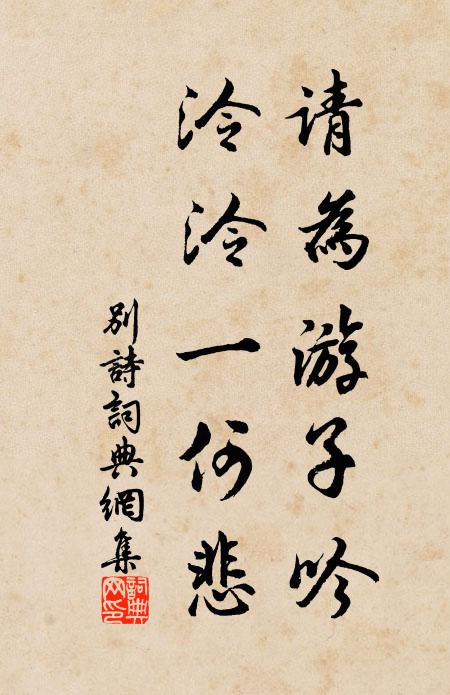 请為游子吟
泠泠一何悲
别詩詞典網集
詞典
网印